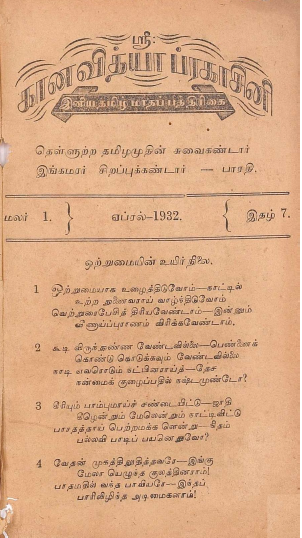 ஸ்ரீ:
கானவித்யா ப்ரகாசினி
இனிய தமிழ் மாதப் பத்திரிகை
தெள்ளுற்ற தமிழமுதின் சுவைகண்டார்
இங்கமரர் சிறப்புக்கண்டார் — பாரதி.
மலர் 1. ஏப்ரல்—1932. இதழ் 7.
ஒற்றுமையின் உயிர் நிலை.
1 ஒற்றுமையாக உழைத்திடுவோம்—காட்டில்
உற்ற துணைவராய் வாழ்ந்திடுவோம்
வெற்றுரைபேசித் திரியவேண்டாம்—இன்னும்
வீணாய்ப்புராணம் விரிக்கவேண்டாம்.
2 கூடி விருந்துண்ண வேண்டவில்லை—பெண்ணைக்
கொண்டு கொடுக்கவும் வேண்டவில்லை
காடி எவரொடும் நட்பினராய்த்—தேச
நன்மைக் குழைப்பதில் கஷ்டமுண்டோ?
3 கீரியும் பாம்புமாய்ச் சண்டையிட்டு—ஜாதி
கீழென்றும் மேலென்றும் காட்டிவிட்டு
பாரதத்தாய் பெற்றமக்க ளென்று—கிதம்
பல்லவி பாடிப் பயனெதுவோ?
4 வேதன் முகத்திலுதித்தவரே—இங்கு
மேலா யெழுந்த குலத்தினராம்!
பாதமதில் வந்த பாவியரே—இந்தப்
பாரிலிழிந்த அடிமைகளாம்!